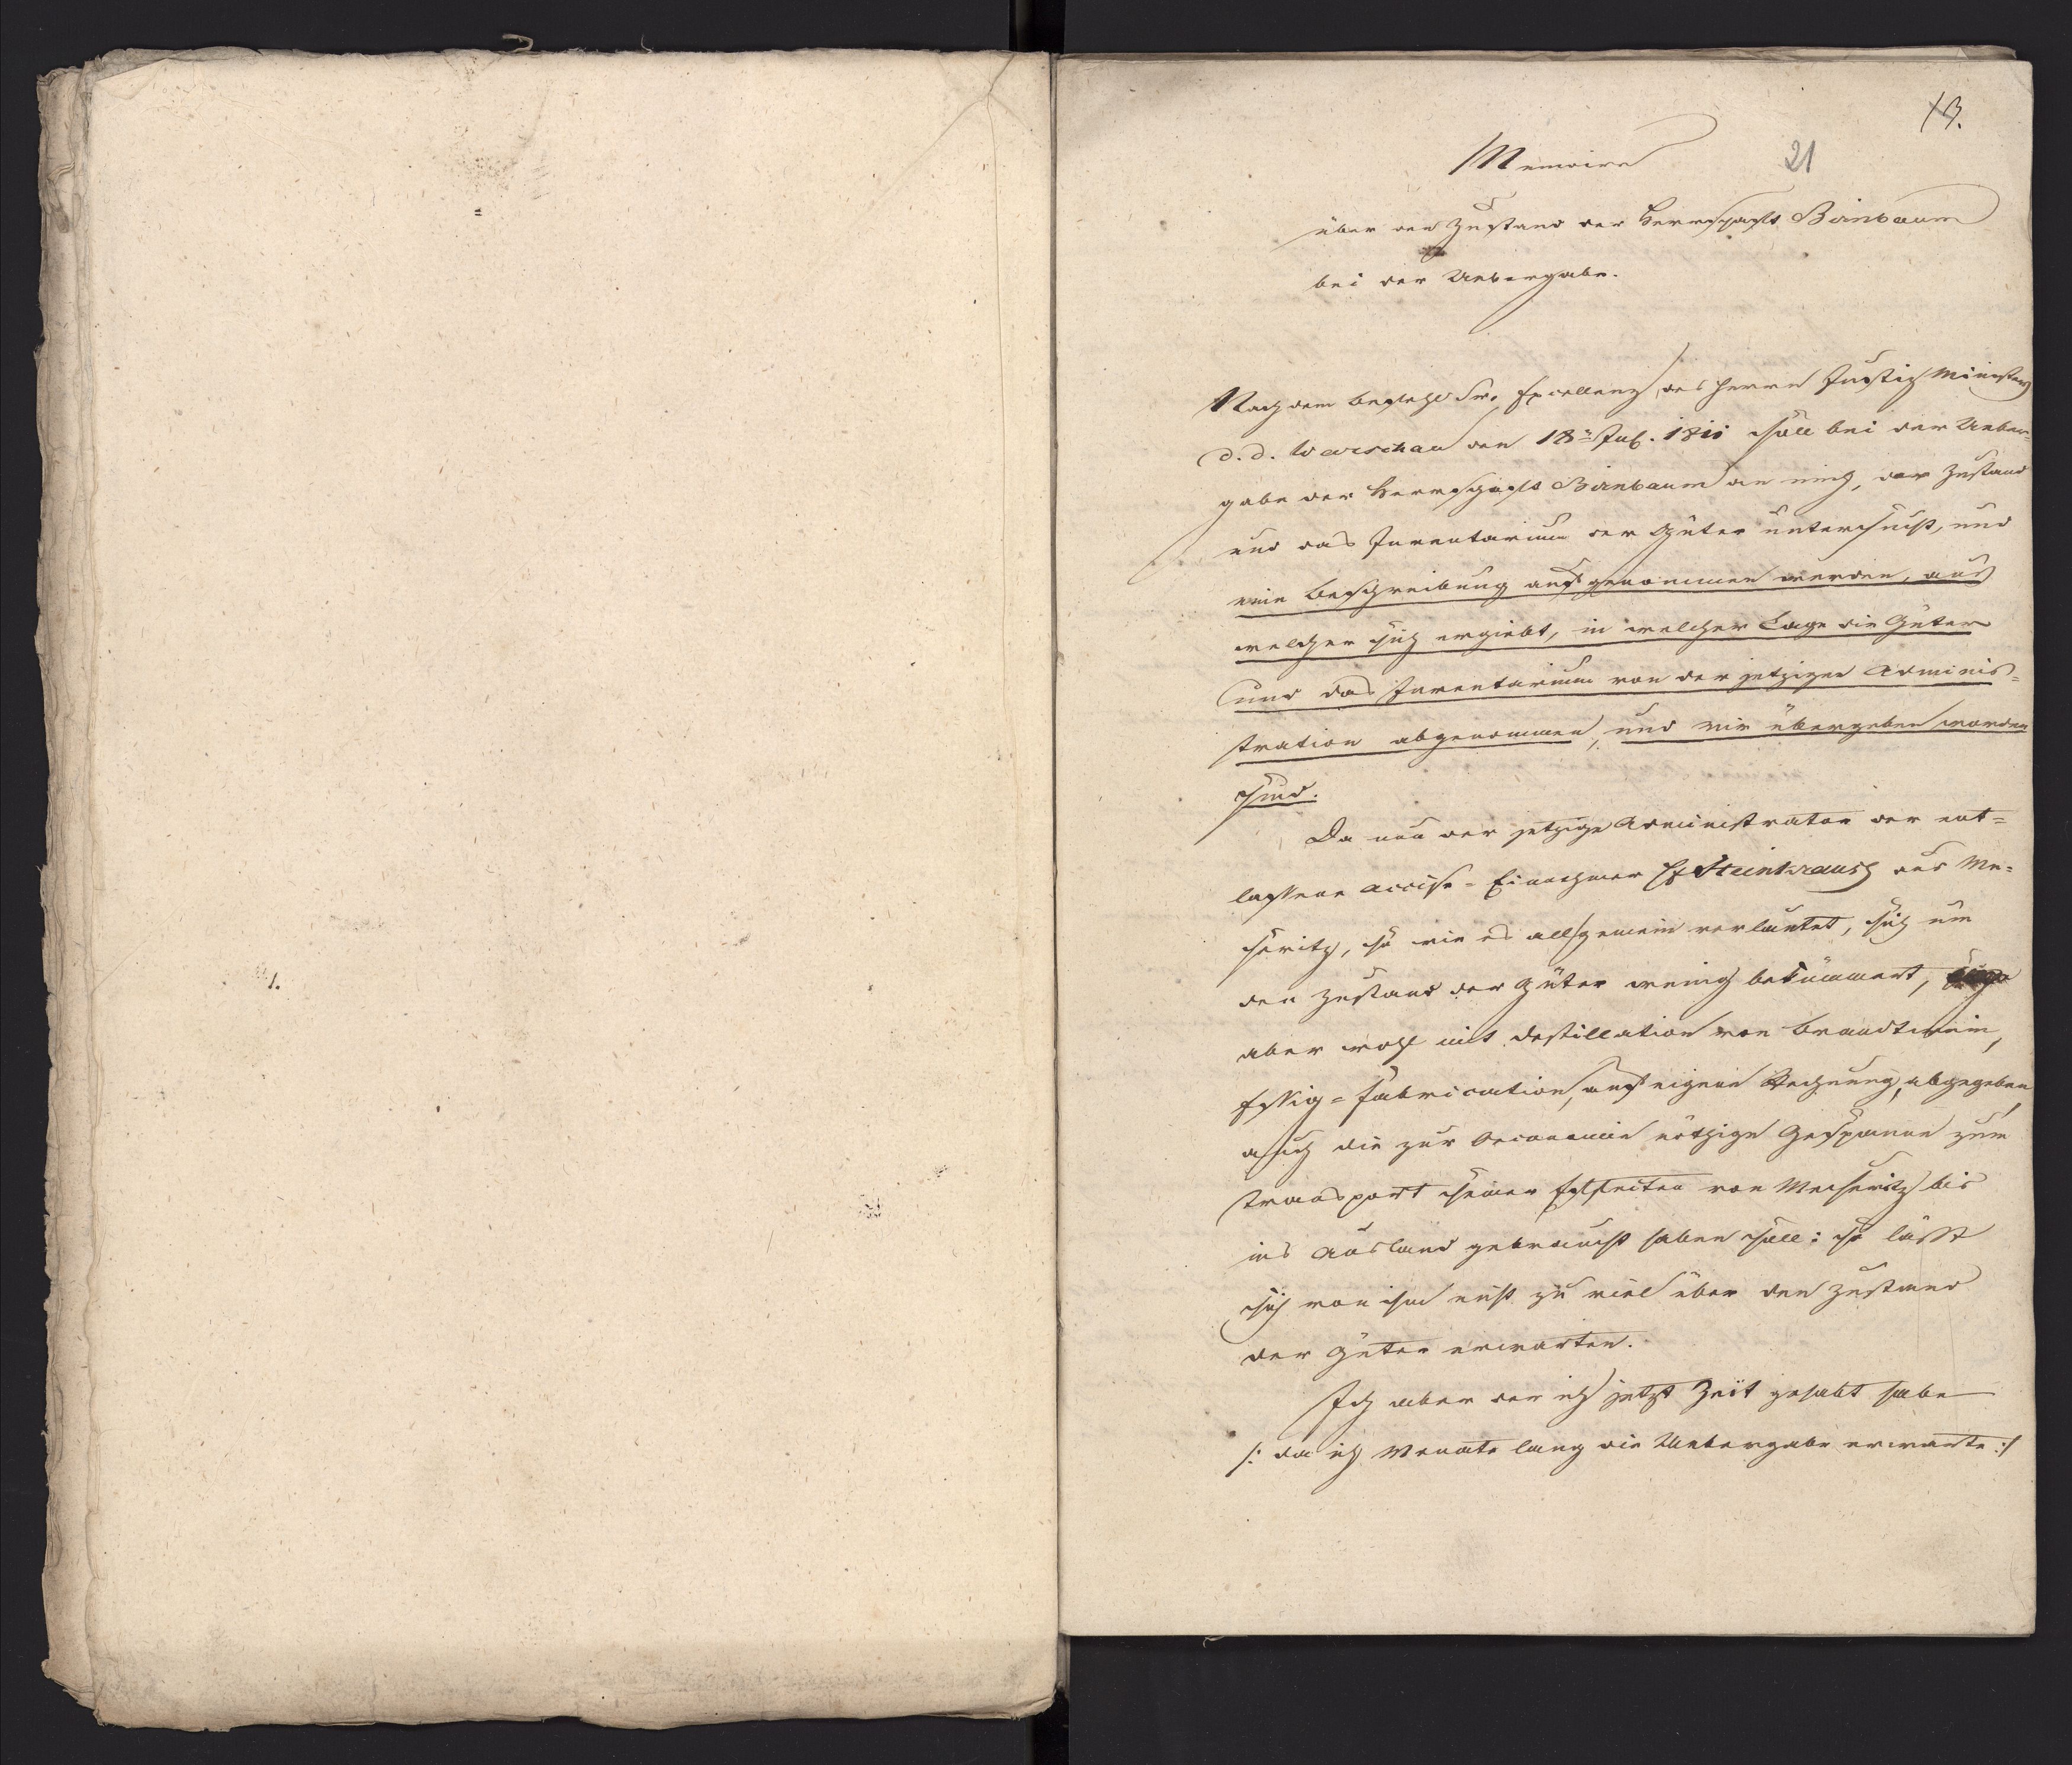 13.
21
Memoire
über den Zustand der Herrschaft Birnbaum
bei der Uebergabe.
Nach dem Befehl Sr. Excellenz des Herrn Justiz Ministers
d. d. Warschau den 18ten Jul. 1811 soll bei der Ueber-
gabe der Herrschaft Birnbaum an mich, der Zustand
und das Inventarium der Güter untersucht, und
eine Beschreibung aufgenommen werden, aus
welcher sich ergiebt, in welcher Lage die Güter
und das Inventarium von der jetzigen Adminis=
tration abgenommen, und mir übergeben worden
sind.
Da nun der jetzige Administrator der ent=
lassene Accise=Einnehmer H Steinkrausch aus Me=
seritz, so wie es allgemein verlautet, sich um
den Zustand der Güter wenig bekümmert,
aber wohl mit Destillation von Brandtwein,
Essig=Fabrication, auf eigene Rechnung, abgegeben,
auch die zur Oeconomie nöthige Gespanne zum
Transport seiner Effecten von Meseritz bis
ins Ausland gebraucht haben soll: so läßt
sich von ihm nicht zu viel über den Zustand
der Güter erwarten.
Ich aber der ich jetzt Zeit gehabt habe
/: da ich Monate lang die Uebergabe erwarte :/